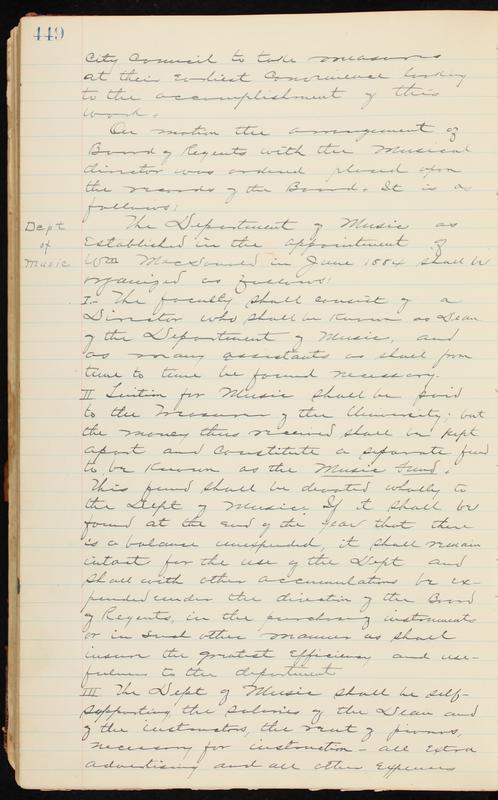 449
City Council to take measures
at their Earliest Convenience looking
to the accomplishment of this
work.
On motion the arrangement of
Board of Regents with the Musical
director was ordered placed upon
the records of the Board. It is as
follows:
Dept of Music
The Department of Music as
Established in the appointment of
Wm MacDonald in June 1884 shall be
organized as follows:
I.- The faculty shall consist of a
Director who shall be Known as Dean
of the Department of Music, and
as many assistants as shall from
time to time be found necessary.
II Tuition for Music shall be paid
to the Treasurer of the University; but
the money thus received shall be Kept
apart and Constitute a separate fund
to be Known as the Music Fund.
This fund shall be devoted wholly to
the Dept of Music. If it shall be
found at the End of the year that there
is a balance unexpended, it shall remain
intact for the use of the Dept and
shall with other accumulations be ex-
pended under the direction of the Board
of Regents, in the purchasing instruments
or in such other manner as shall
insure the greatest Efficiency and use-
fulness to the department
III The Dept of Music shall be self-
supporting, the salaries of the Dean and
of the instructors, the rent of pianos,
necessary for instruction - all Extra
advertising and all other Expenses